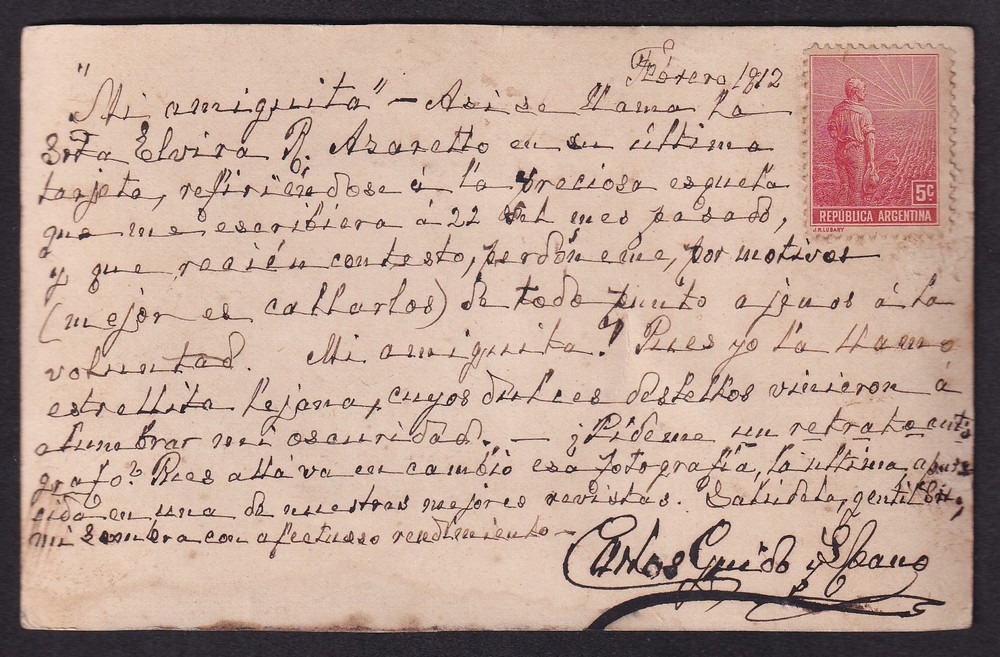 Febrero 1912
"Mi amiguita" — Asi se llama la
Srta Elvira R. Azaretto en su última
tarjeta, refiriéndose á la preciosa esquela
que me escribiera á 22 del mes pasado,
y que recién contesto, perdóneme, por motivos
(mejor es callarlos) de todo punto ajenos á la
voluntad. Mi amiguita! Pues yo la llamo
estrellita lejana, cuyos dulces destellos vinieron á
alumbrar mi oscuridad. — ¿Pídeme un retrato autó
grafo? Pues allá va en cambio esa fotografía, la ultima apare
cida en una de nuestras mejores revistas. Salúdela, gentil
mi sombra con afectuoso rendimiento —
Carlos Guido y Spano
5c
REPÚBLICA ARGENTINA